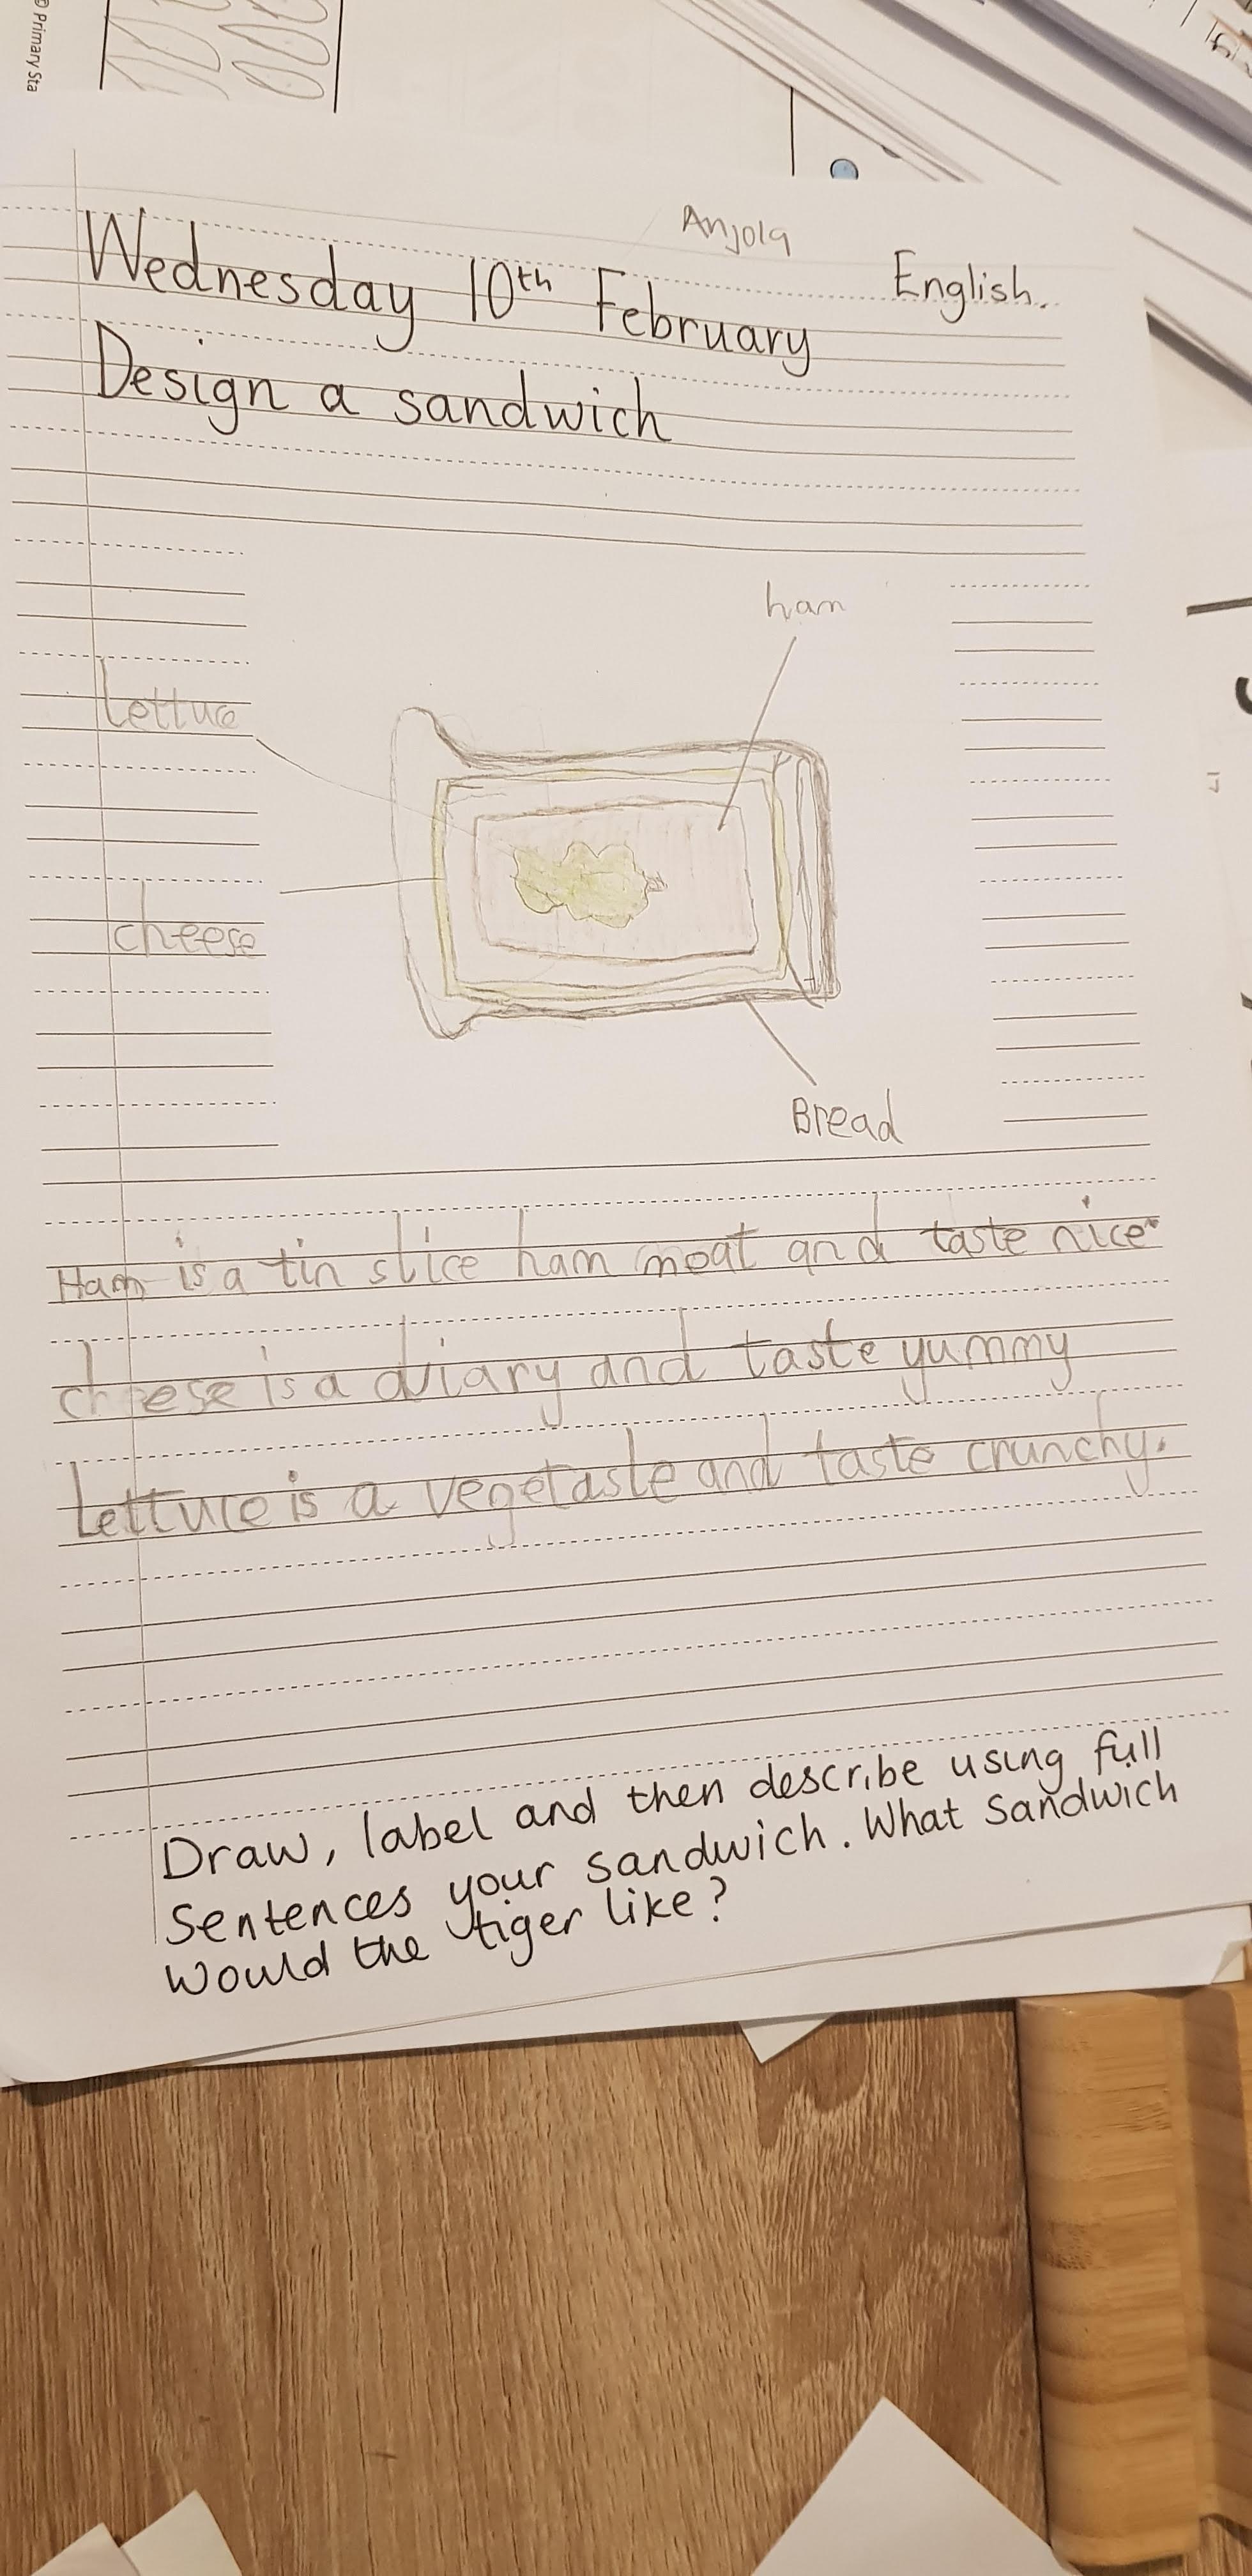 © Primary Sta
Anjola
Wednesday 10th February English.
Design a sandwich
ham
Lettuce
cheese
Bread
Ham is a tin slice ham meat and taste nice
cheese is a diary and taste yummy
Lettuce is a vegetaste and taste crunchy.
Draw, label and then describe using full
sentences your sandwich. What sandwich
would the tiger like?